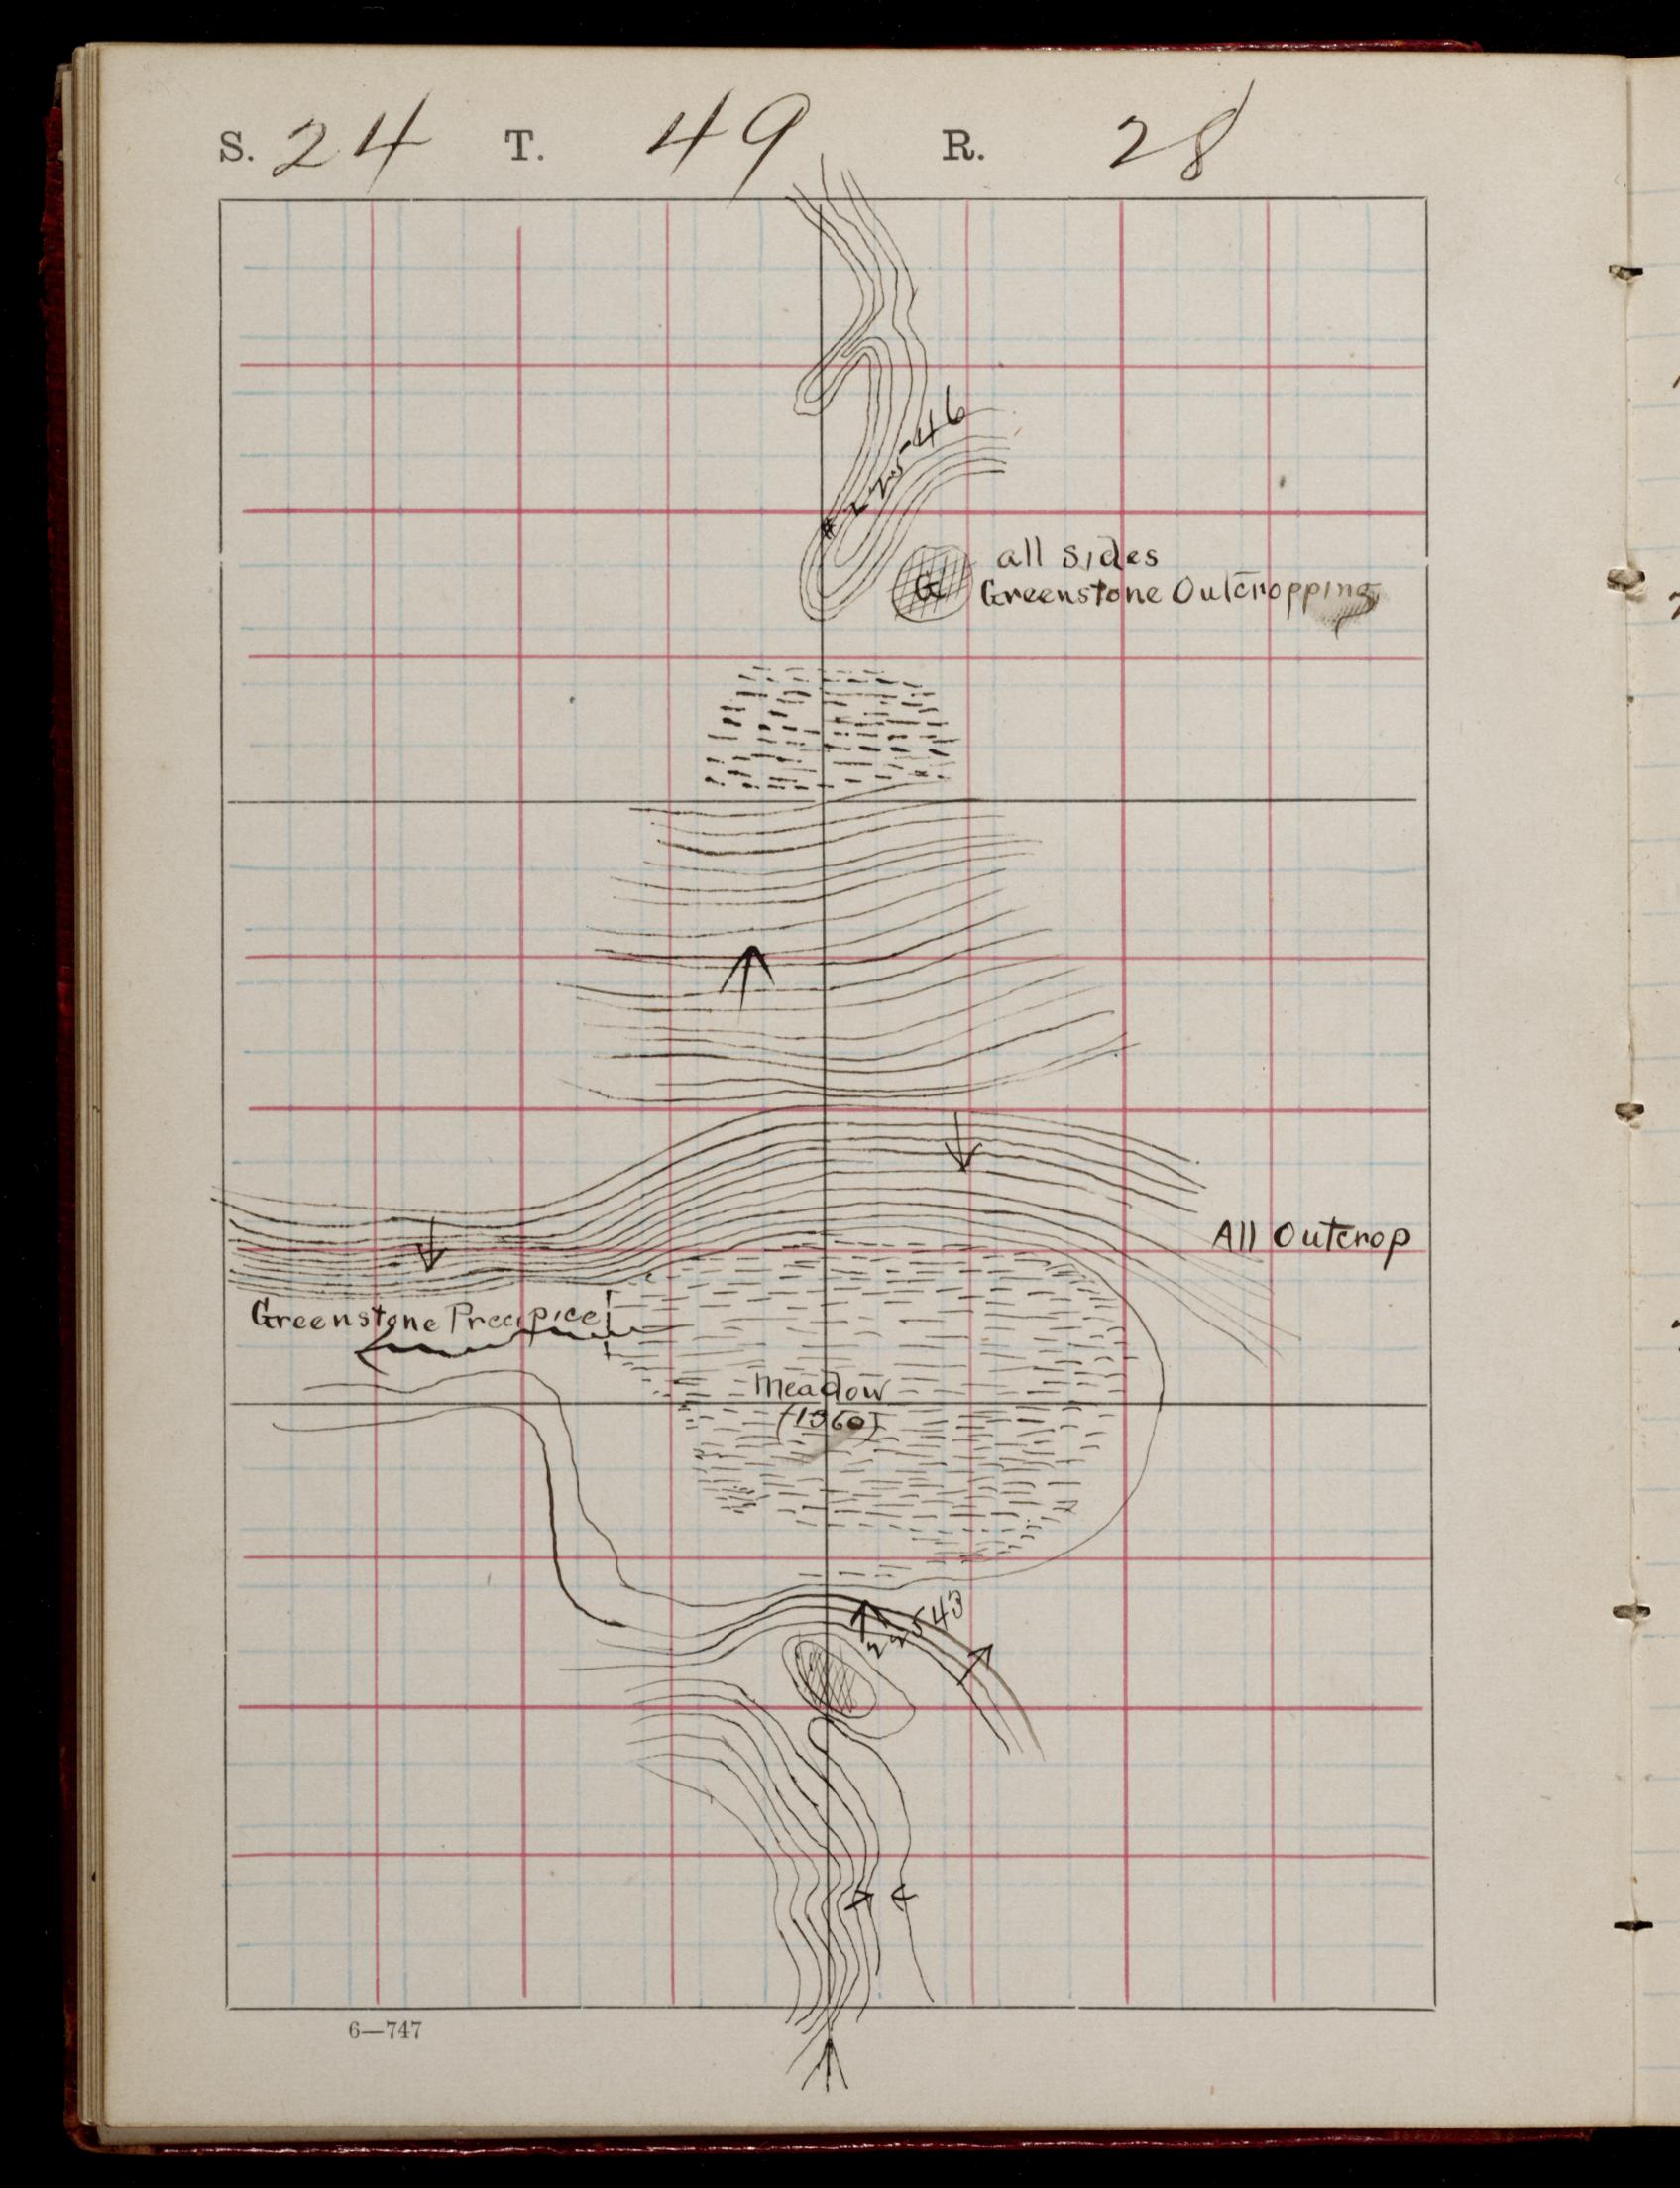 S. 24 T. 49 R. 28
22546
all sides
G
Greenstone Outcropping
All Outcrop
Greenstone Precipice
Meadow
(1360)
22543
6—747